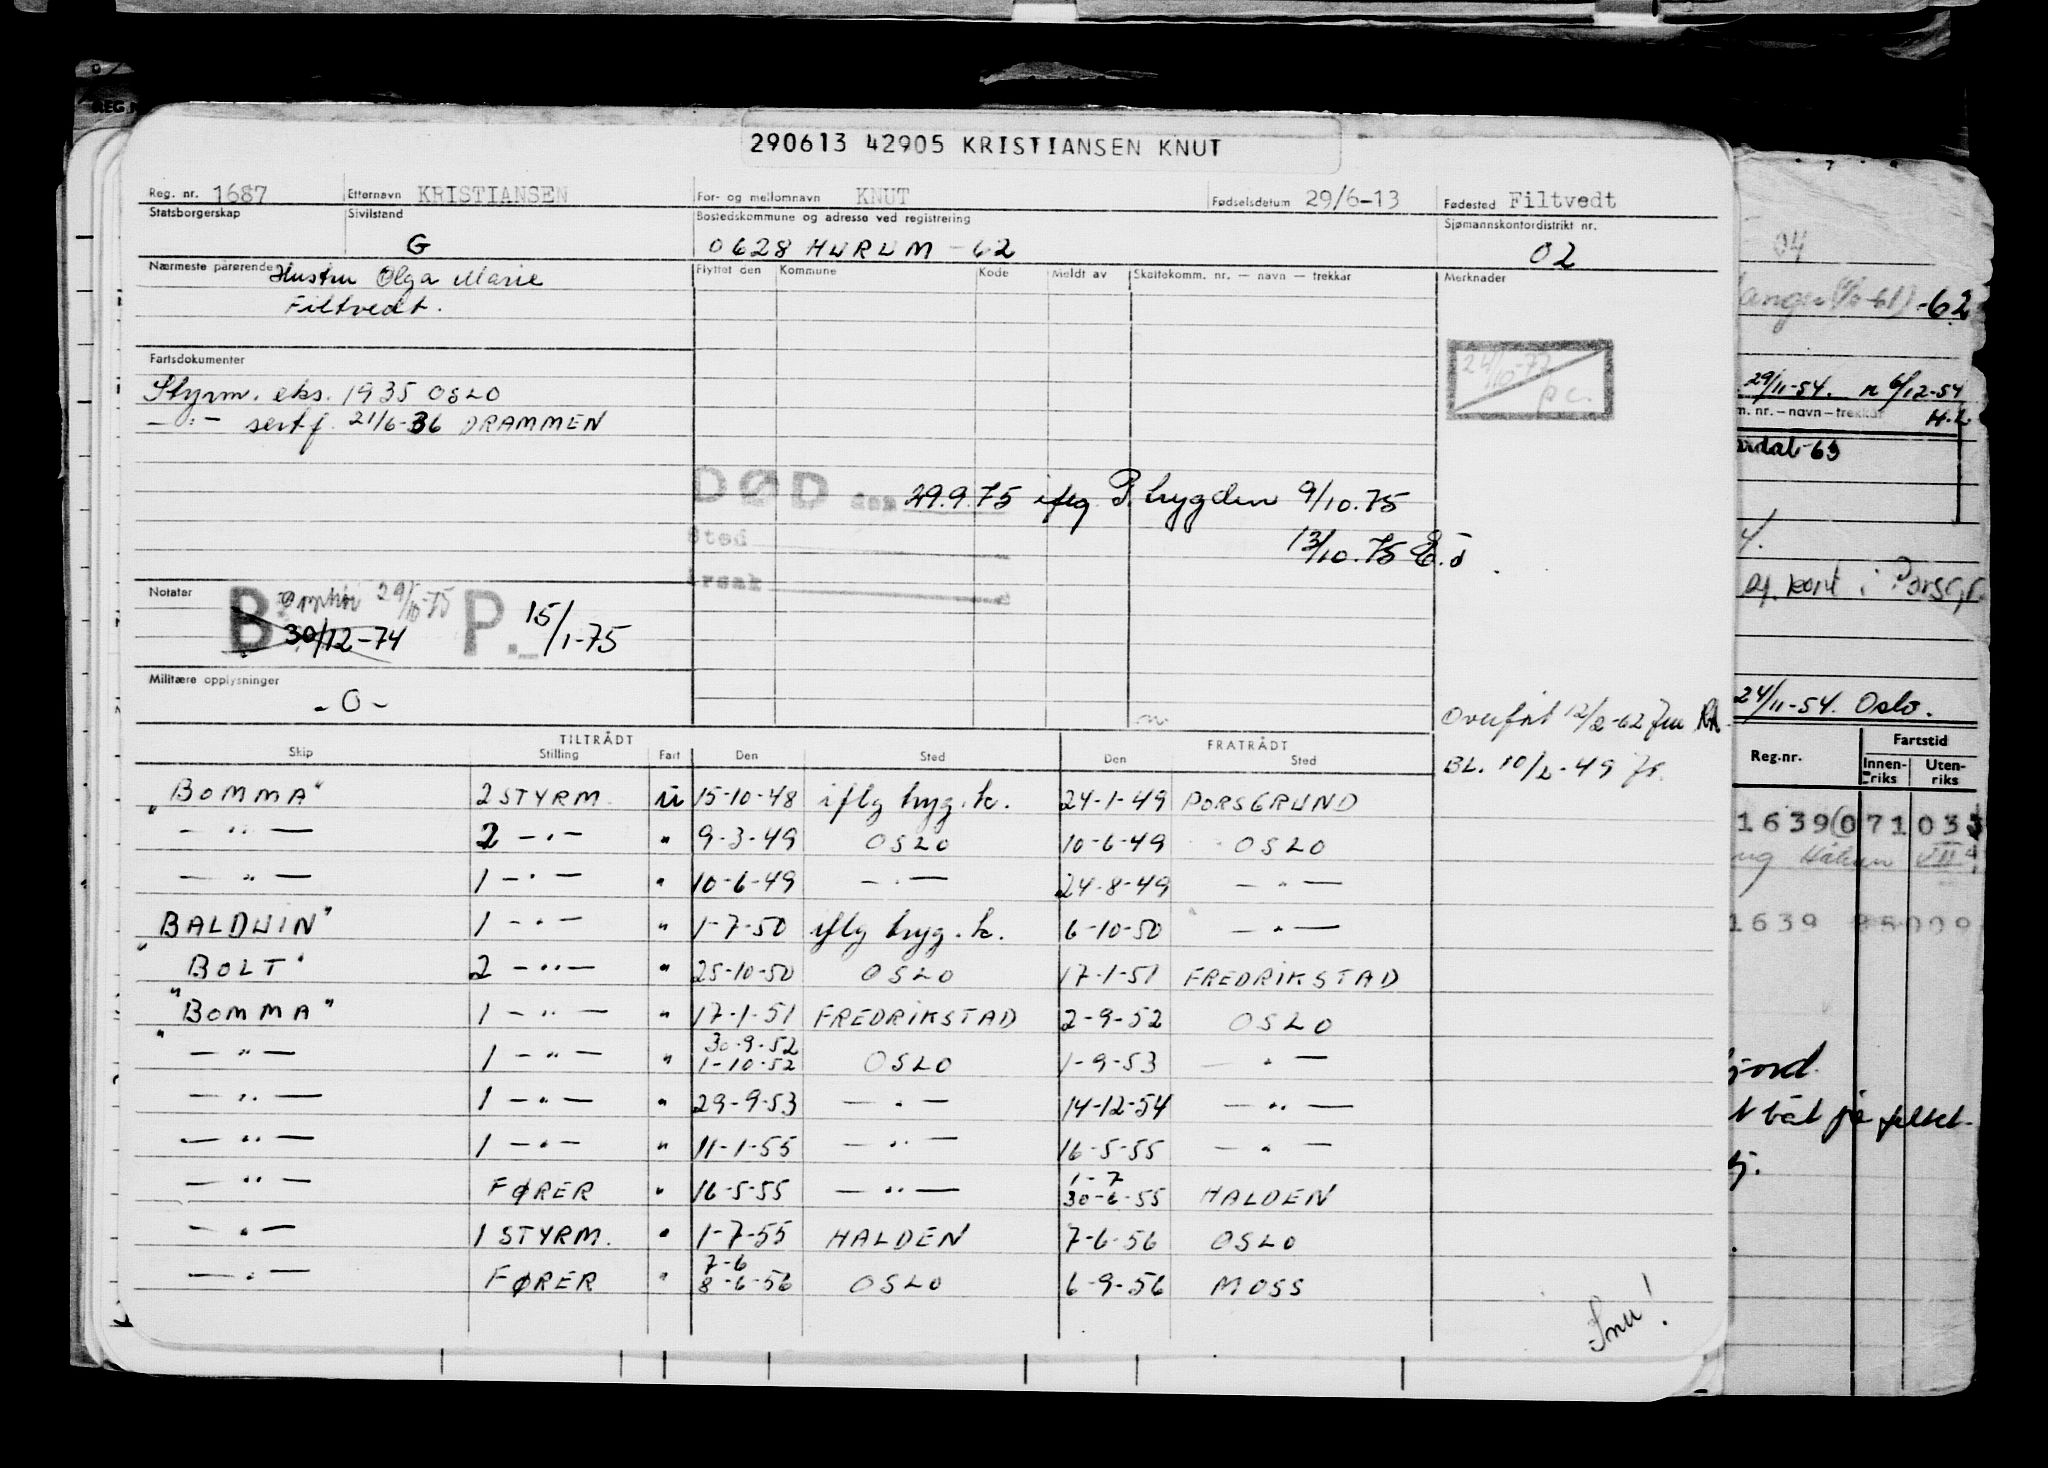 290613 42905 KRISTIANSEN KNUT
Reg. nr. 1687 Etternavn KRISTIANSEN For- og mellomnavn KNUT Fødselsdatum 29/6-13 Fødested Filtvedt
Statsborgerskap Sivilstand Bostedskommune og adresse ved registrering Sjømannskontordistrikt nr.
G 0628 HURUM - 62 02
Nærmeste pårørende Hustru Olga Marie Flyttet den Kommune Kode Meldt av Skattekomm. nr. — navn — trekkar Merknader
Filtvedt.
24/10-72
p.c.
Fartsdokumenter
Styrm. eks. 1935 OSLO
— " — sertf. 21/6-36 DRAMMEN
DØD den 29.9.75 iflg P. trygden 9/10.75
Sted 13/10.75
årsak
Notater
B 29/10-75 P. 15/1-75
30/12-74
Militære opplysninger
- 0 -
Overført 12/2-62
BL. 10/2-49
TILTRÅDT FRATRÅDT
Skip Stilling Fart Den Sted Den Sted
"BOMMA" 2 STYRM. U 15-10-48 iflg tryg.k. 24-1-49 PORSGRUND
— " — 2 — " — " 9-3-49 OSLO 10-6-49 OSLO
— " — 1 — " — " 10-6-49 — " — 24-8-49 — " —
BALDUIN" 1 — " — " 1-7-50 iflg tryg.k. 6-10-50 — " —
"BOLT" 2 — " — " 25-10-50 OSLO 17-1-51 FREDRIKSTAD
"BOMMA" 1 — " — " 17-1-51 FREDRIKSTAD 2-9-52 OSLO
30-9-52
— " — 1 — " — " 1-10-52 OSLO 1-9-53 — " —
— " — 1 — " — " 29-9-53 — " — 14-12-54 — " —
— " — 1 — " — " 11-1-55 — " — 16-5-55 — " —
1-7
— " — FØRER " 16-5-55 — " — 30-6-55 HALDEN
— " — 1 STYRM. " 1-7-55 HALDEN 7-6-56 OSLO
7-6
— " — FØRER " 8-6-56 OSLO 6-9-56 MOSS
Snu!
04
-62
29/11-54. n 6/12-54
m. nr. — navn — trekkar H.L
ardal-63
kort i Porsgr.
24/11-54. Oslo.
Reg.nr. Fartstid
Innen- Uten-
riks riks
1639 071033
1639
fjord.
t båt på feltet.